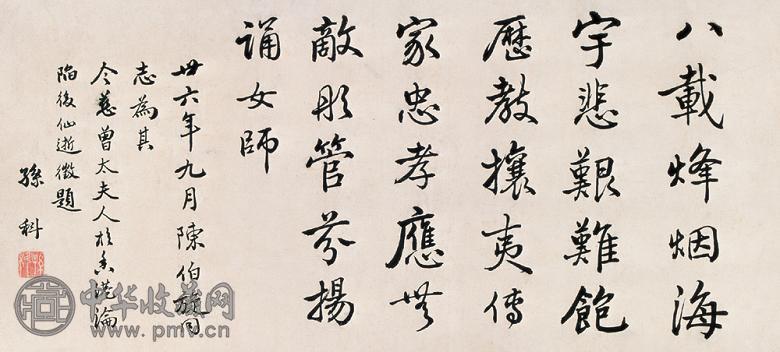 八載烽烟海
宇悲艱難飽
歷教攘夷傳
家忠孝應無
敵彤管芬揚
誦女師
卅六年九月陳伯旋同
志為其
令慈曾太夫人於香港淪
陷後仙逝徵題
孫科
中华收藏网
www.pmv.cn